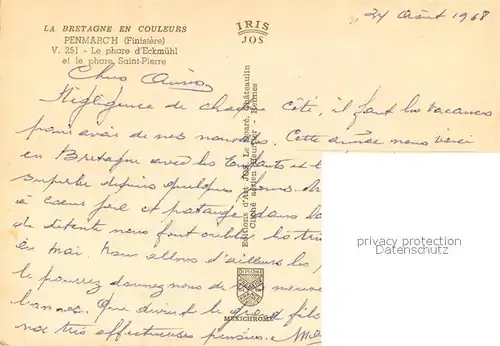 LA BRETAGNE EN COULEURS
PENMARC'H (Finistère)
V. 251 - Le phare d'Eckmühl
et le phare Saint-Pierre
IRIS
JOS
24 Août 1968
Chers Amis,
Négligence de chaque côté, il faut les vacances
pour avoir de nos nouvelles. Cette année nous voici
en Bretagne avec les Enfants et
superbe depuis quelques jours.
à coeur joie et patauge dans
de détente nous font oublier les
de mai. Nous allons d'ailleurs
le pourrez donnez nous de
bonnes. Que devient le grand fils
nos très affectueuses pensées.
Editions d'Art JOS Le Doaré, Châteaulin
Cliché action Heurtier - Rennes
DIPLOME
PRESTIGE
FRANCE
MEXICHROME
privacy protection
watermark